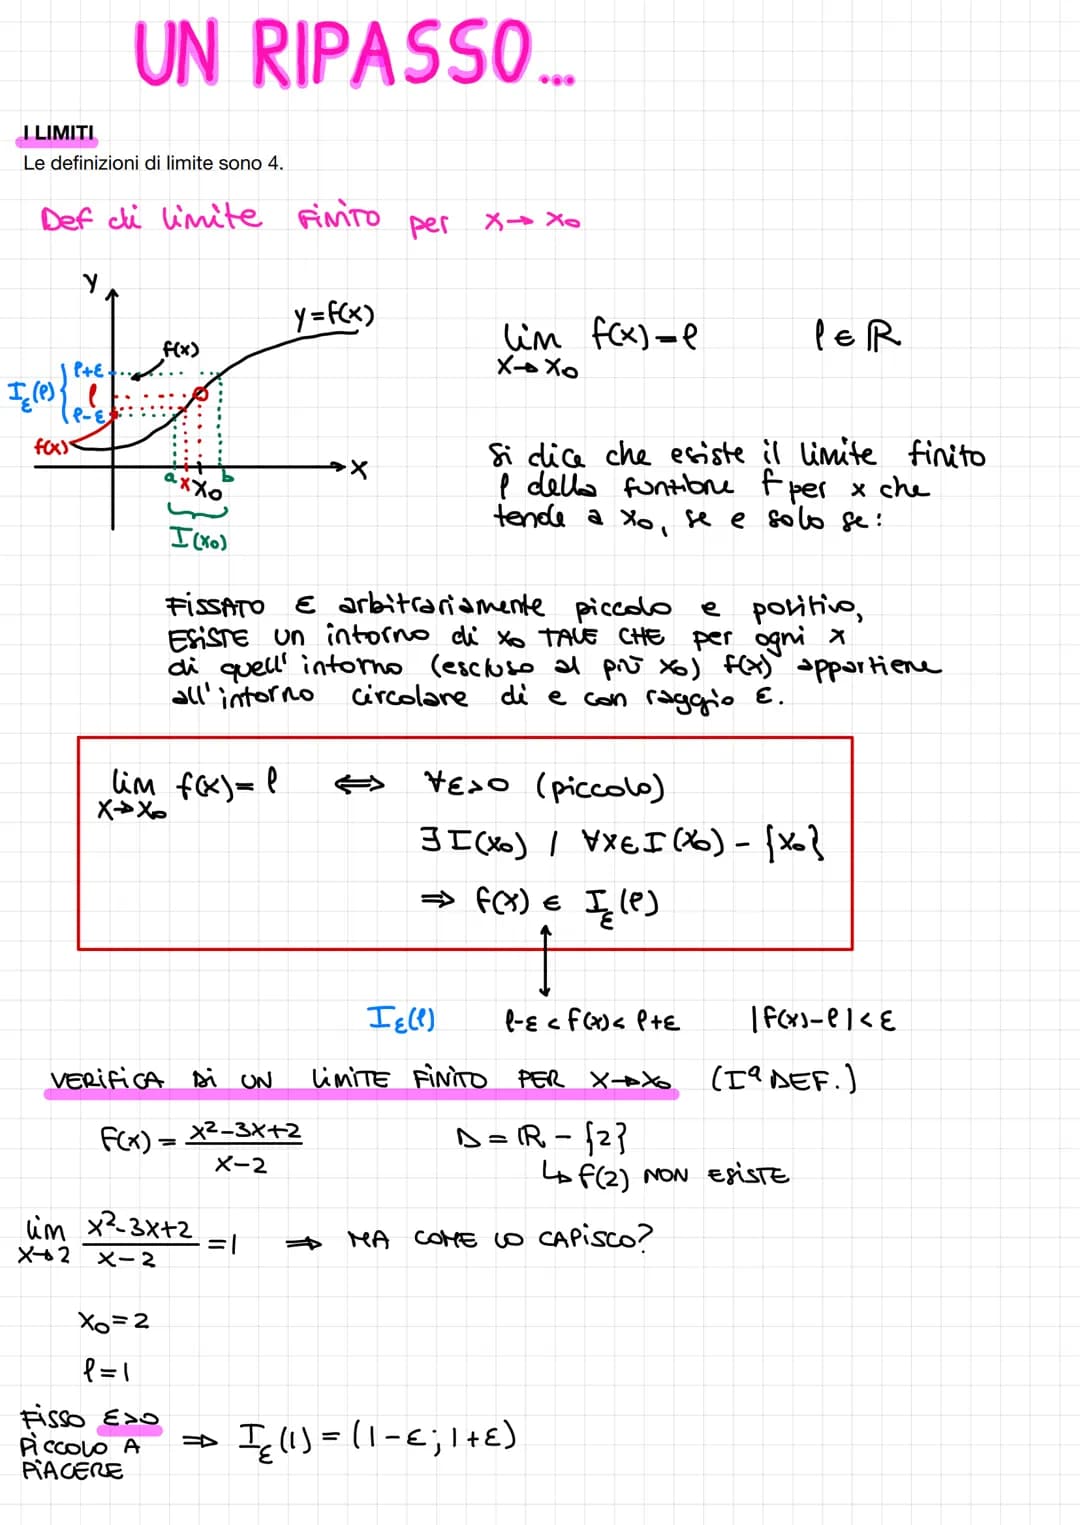 UN RIPASSO...
I LIMITI
Le definizioni di limite sono 4.
Def di limite FINITO per x→x₀
y
y=f(x)
f(x)
ℓ+ε
I_ε(ℓ) { ℓ
ℓ-ε
f(x)
x
a x x₀ b
I(x₀)
lim f(x)=ℓ ℓ∈ℝ
x→x₀
Si dice che esiste il limite finito
ℓ della funzione f per x che
tende a x₀, se e solo se:
FISSATO ε arbitrariamente piccolo e positivo,
ESISTE un intorno di x₀ TALE CHE per ogni x
di quell'intorno (escluso al più x₀) f(x) appartiene
all'intorno circolare di e con raggio ε.
lim f(x)=ℓ ⟺ ∀ε>0 (piccolo)
x→x₀
∃I(x₀) / ∀x∈I(x₀)-{x₀}
⇒ f(x) ∈ I_ε(ℓ)
I_ε(ℓ) ℓ-ε<f(x)<ℓ+ε |f(x)-ℓ|<ε
VERIFICA DI UN LIMITE FINITO PER x→x₀ (Iª DEF.)
F(x) = x²-3x+2 / x-2 D=ℝ-{2}
↳ f(2) NON ESISTE
lim x²-3x+2 / x-2 =1 ⇒ MA COME LO CAPISCO?
x→2
x₀=2
ℓ=1
FISSO ε>0
PICCOLO A ⇒ I_ε(1)=(1-ε;1+ε)
PIACERE